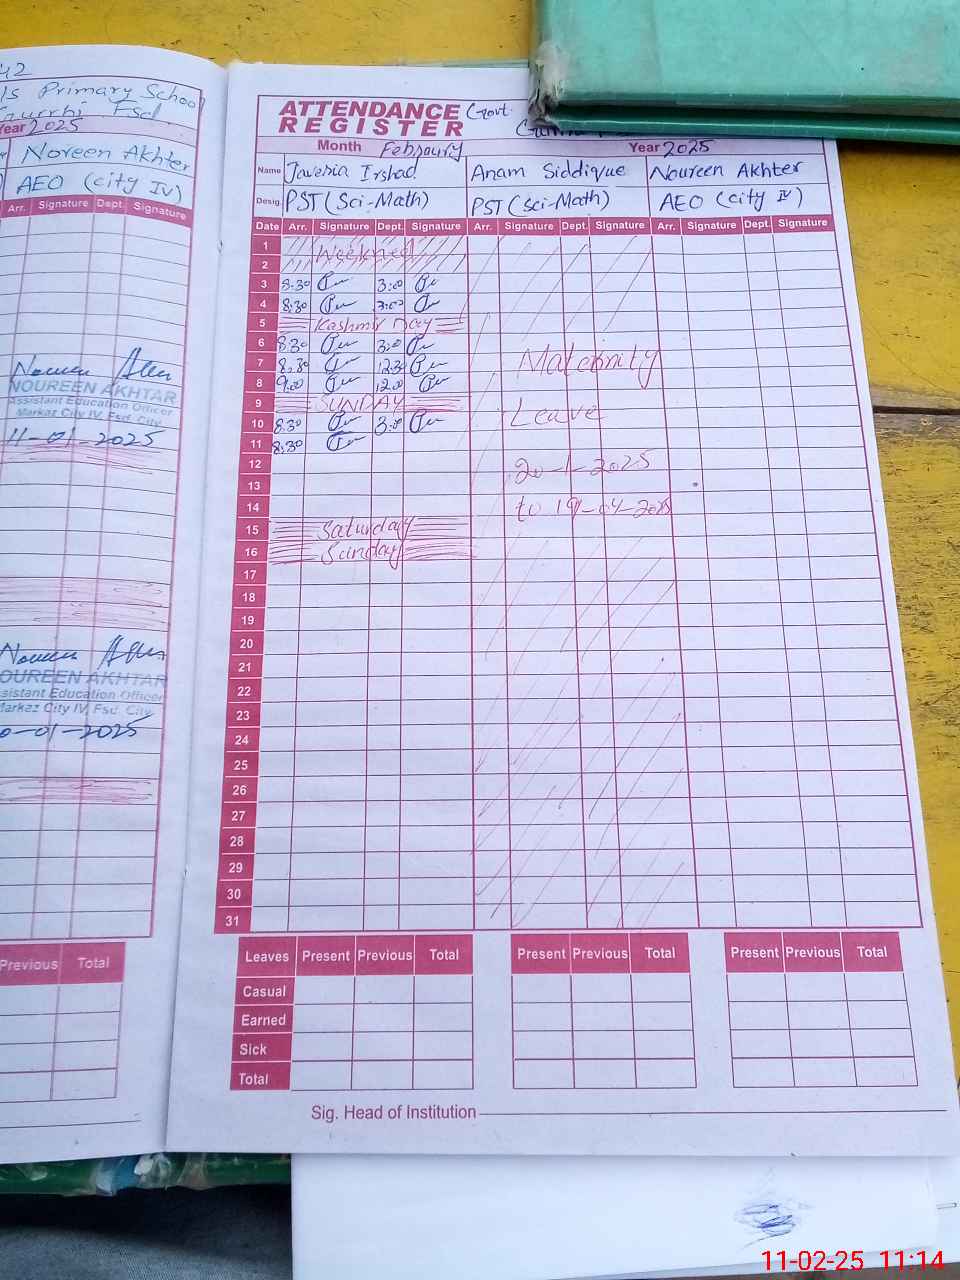 42
ls Primary School
Fsd.
Year 2025
Noreen Akhter
AEO (city IV)
Arr. Signature Dept. Signature
NOUREEN AKHTAR
Assistant Education Officer
Markaz City IV, Fsd. City
11-01-2025
OUREEN AKHTAR
ssistant Education Officer
Markaz City IV, Fsd. City
0-01-2025
Previous Total
ATTENDANCE Govt.
REGISTER
Month Febraury Year 2025
Name Javeria Irshad Anam Siddique Noureen Akhter
Desig. PST (Sci-Math) PST (Sci-Math) AEO (city IV)
Date Arr. Signature Dept. Signature Arr. Signature Dept. Signature Arr. Signature Dept. Signature
1
2
3 8:30 3:00
4 8:30 3:00
5 Kashmir Day
6 8:30 3:00
7 8:30 12:30 Maternity
8 9:00 12:00
9 SUNDAY Leave
10 8:30 3:00
11 8:30
12 20-1-2025
13
14 to 19-04-2025
15 Saturday
16 Sunday
17
18
19
20
21
22
23
24
25
26
27
28
29
30
31
Leaves Present Previous Total Present Previous Total Present Previous Total
Casual
Earned
Sick
Total
Sig. Head of Institution
11-02-25 11:14